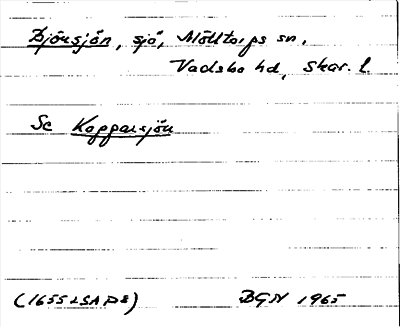 Björsjön, sjö, Mölltorps sn.
Vadsbo hd, Skar. l.
Se Kopparsjön
(1655 LSA P8) BGN 1965